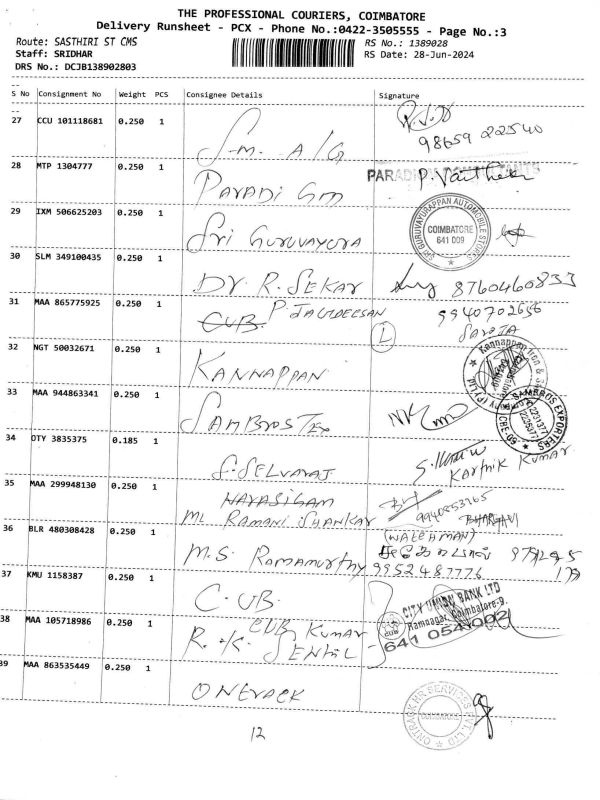 THE PROFESSIONAL COURIERS, COIMBATORE
Delivery Runsheet - PCX - Phone No.:0422-3505555 - Page No.:3
Route: SASTHIRI ST CMS
RS No.: 1389028
Staff: SRIDHAR
RS Date: 28-Jun-2024
DRS No.: DCJB138902803
S No Consignment No Weight PCS Consignee Details Signature
27 CCU 101118681 0.250 1 S.M. A/G
98659 22540
28 MTP 1304777 0.250 1 PAVADI GM
29 IXM 506625203 0.250 1 Sri GURUVAYURA
SRI GURUVAYURAPPAN AUTOMOBILE STORES
COIMBATORE
641 009
30 SLM 349100435 0.250 1 DR. R. SEKAR 8760460833
31 MAA 865775925 0.250 1 CUB. P JAGDEESAN
9940702656
SAROJA
32 NGT 50032671 0.250 1 KANNAPPAN
33 MAA 944863341 0.250 1 SAMBROS TEX
SAMBROS EXPORTERS
34 OTY 3835375 0.185 1 S. SELVARAJ
Karthik Kumar
35 MAA 299948130 0.250 1 NARASIGAM
ML RAMANI SHANKAR
BHARGAVI
(WATCHMAN)
36 BLR 480308428 0.250 1 M.S. Ramamurthy 9952487776
37 KMU 1158387 0.250 1 C.UB
CITY UNION BANK LTD
Ramnagar, Coimbatore-9.
38 MAA 105718986 0.250 1 R. K. CUB KUMAR
SENTHIL
39 MAA 863535449 0.250 1 ONERACK
ONTRACK HR SERVICES PVT. LTD
COIMBATORE
12